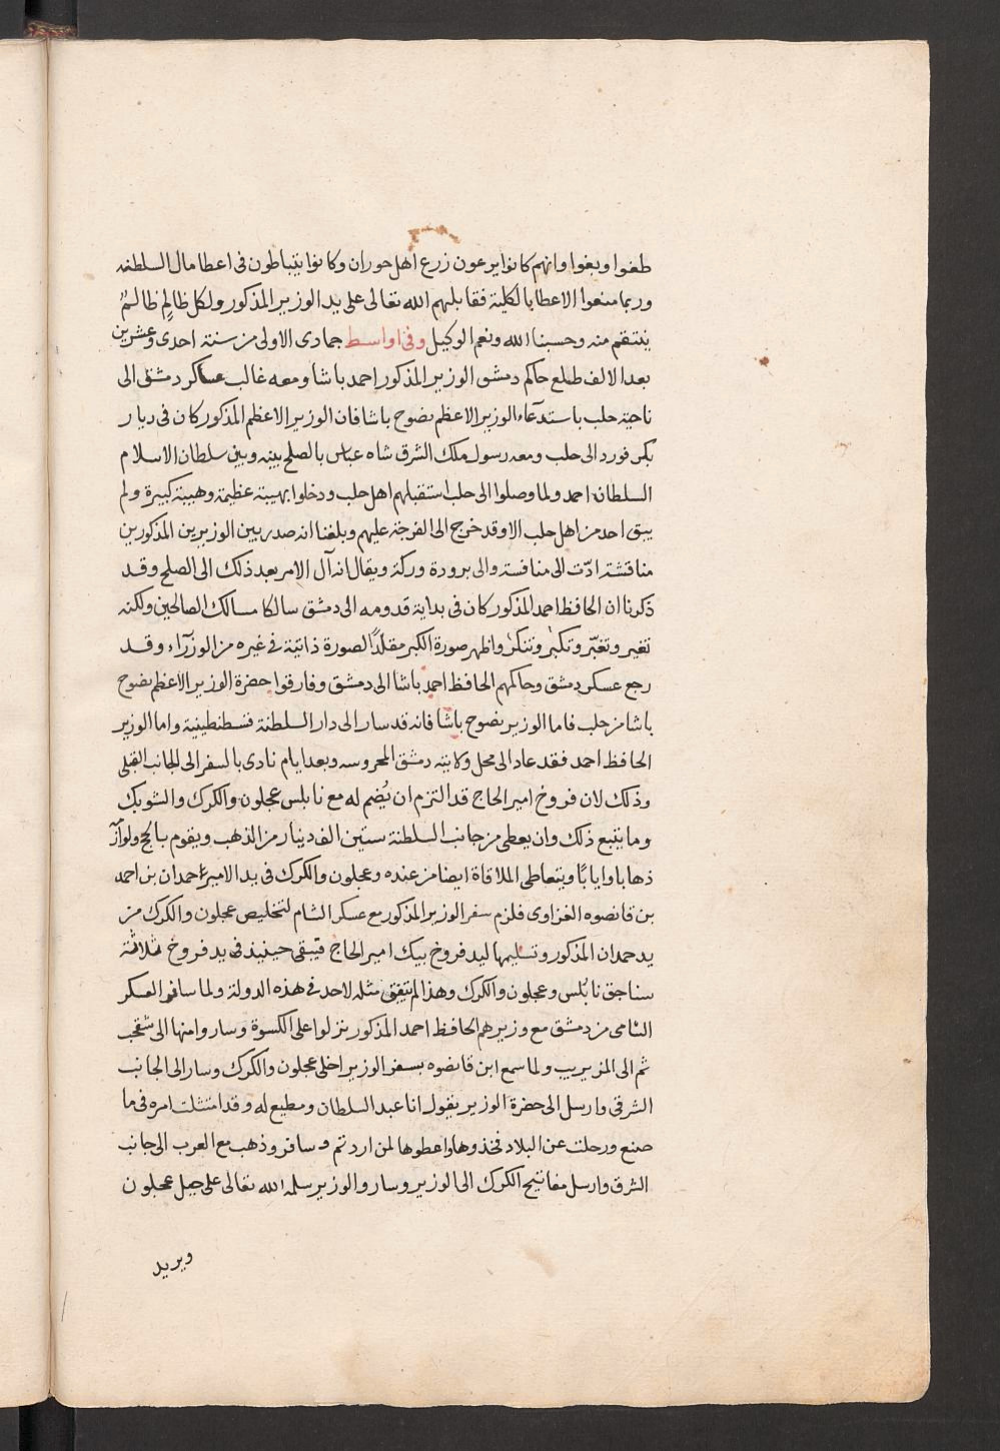 طغوا وبغوا وانهم كانوا يرعون زرع اهل حوران وكانوا يتباطون فى اعطا مال السلطنه
وربما منعوا الاعطا بالكلية فقابلهم الله تعالى على يد الوزير المذكور ولكل ظالم ظالمٌ
ينتقم منه وحسبنا الله ونعم الوكيل وفى اواسط جمادى الاولى من سنة احدى وعشرين
بعد الالف طلع حاكم دمشق الوزير المذكور احمد باشا ومعه غالب عساكر دمشق الى
ناحية حلب باستدعاء الوزير الاعظم نصوح باشا فان الوزير الاعظم المذكور كان فى ديار
بكر فورد الى حلب ومعه رسول ملك الشرق شاه عباس بالصلح بينه وبين سلطان الاسلام
السلطان احمد ولما وصلوا الى حلب استقبلهم اهل حلب ودخلوا بهيبة عظيمة وهيبة كبيرة ولم
يبق احد من اهل حلب الا وقد خرج الى الفرجة عليهم وبلغنا انه صدر بين الوزيرين المذكورين
مناقشة ادّت الى منافسة والى برودة وركة ويقال انه آل الامر بعد ذلك الى الصلح وقد
ذكرنا ان الحافظ احمد المذكور كان فى بداية قدومه الى دمشق سالكا مسالك الصالحين ولكنه
تغير وتغبّر وتكبر وتنكر واظهر صورة الكبر مقلدًا لصورة ذاتية فى غيره من الوزرآء وقد
رجع عسكر دمشق وحاكمهم الحافظ احمد باشا الى دمشق وفارقوا حضرة الوزير الاعظم نصوح
باشا من حلب فاما الوزير نصوح باشا فانه قد سار الى دار السلطنة قسطنطينية واما الوزير
الحافظ احمد فقد عاد الى محل ولايته دمشق المحروسه وبعد ايام نادى بالسفر الى الجانب القبلى
وذلك لان فروخ امير الحاج قد التزم ان يُضم له مع نابلس عجلون والكرك والشوبك
وما يتبع ذلك وان يعطى من جانب السلطنة ستين الف دينار من الذهب ويقوم بالحج ولوازمه
ذهابا وايابًا ويتعاطى الملاقاة ايضا من عنده وعجلون والكرك فى يد الامير حمدان بن احمد
بن قانصوه الغزاوى فلزم سفر الوزير المذكور مع عسكر الشام لتخليص عجلون والكرك من
يد حمدان المذكور وتسليمها ليد فروخ بيك امير الحاج فيبقى حينيذ فى يد فروخ ثلاثة
سناجق نابُلس وعجلون والكرك وهذا لم يتفق مثله لاحد فى هذه الدولة ولما سافر العسكر
الشامى من دمشق مع وزيرهم الحافظ احمد المذكور نزلوا على الكسوة وساروا منها الى شقحب
ثم الى المزيريب ولما سمع ابن قانصوه بسفر الوزير اخلى عجلون والكرك وسار الى الجانب
الشرقى وارسل الى حضرة الوزير يقول انا عبد السلطان ومطيع له وقد امتثلت امره فى ما
صنع ورحلت عن البلاد فخذوها واعطوها لمن اردتم وسافر وذهب مع العرب الى جانب
الشرق وارسل مفاتيح الكرك الى الوزير وسار والوزير سلمه الله تعالى على جبل عجلون
ويريد